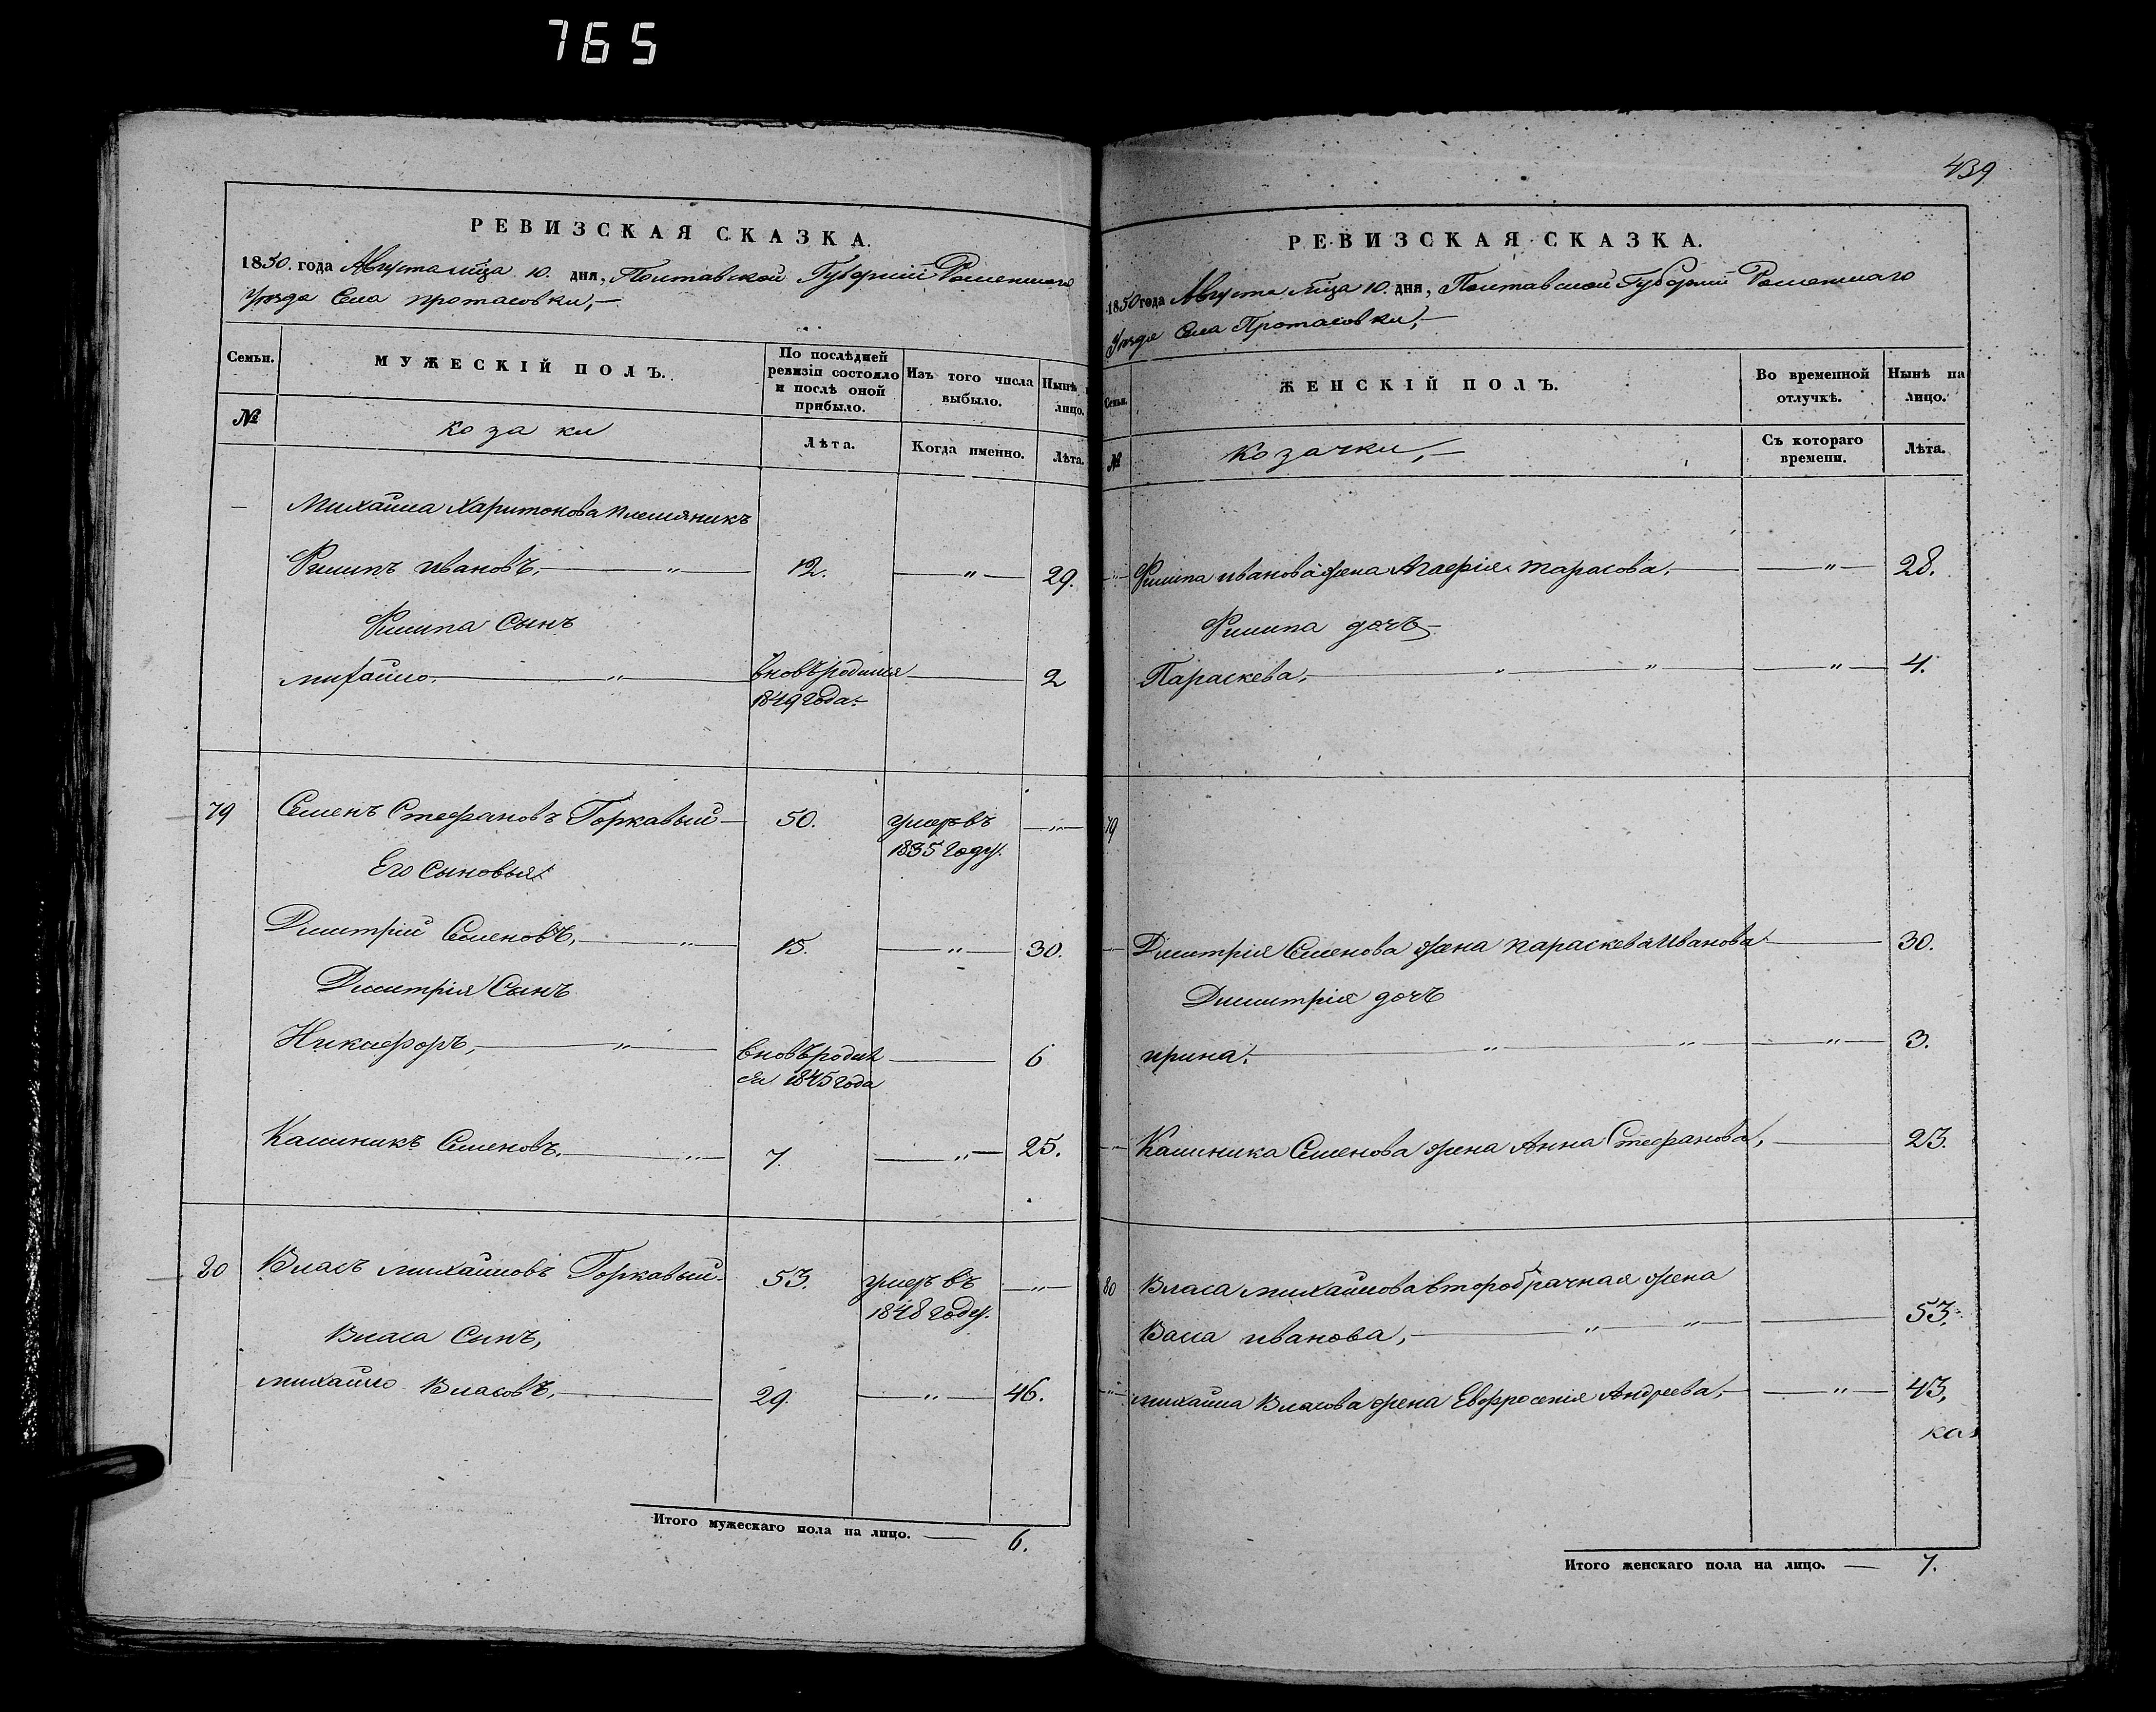 765
РЕВИЗСКАЯ СКАЗКА.
1850. года Августа мца 10. дня, Полтавской Губернии Роменского
Уезда Села Протасовки,
Семьи.
МУЖЕСКІЙ ПОЛЪ.
По послѣдней ревизіи состояло и послѣ оной прибыло.
Изъ того числа выбыло.
Нынѣ
лицо.
№
козаки
Лѣта.
Когда именно.
Лѣта.
Михаила Харитонова племяникъ
Филипъ Ивановъ. 12. 29.
Филипа Сынъ
михайло. вновь родился 2
1849 года.
79 Семенъ Стефановъ Горкавый 50. умеръ въ
1835 году.
Его Сыновья:
Димитрій Семеновъ, 13. 30.
Димитрія Сынъ
Никифоръ, вновь родил 6
ся 1845 года
Калиникъ Семеновъ. 7. 25.
80 Власъ михайловъ Горкавый 53. умеръ въ
1848 году.
Власа Сынъ,
михайло Власовъ, 29. 46.
Итого мужескаго пола на лицо. 6.
439
РЕВИЗСКАЯ СКАЗКА.
1850 года Августа мца 10. дня, Полтавской Губерніи Роменнаго
Уезда Села Протасовки,
Семьи.
ЖЕНСКІЙ ПОЛЪ.
Во временной отлучкѣ.
Нынѣ на лицо.
№
Козачки,
Съ котораго времени.
Лѣта.
Филипа иванова жена Агафія тарасова. 28.
Филипа дочь
Параскева, 4.
79
Димитрія Семенова жена параскева иванова 30.
Димитрія дочь
ирина. 3.
Калиника Семенова жена Анна Стефанова, 23.
80 Власа михайлова второбрачная жена
Васа иванова, 53.
михайла Власова жена Евфросенія Андреева, 43,
Итого женскаго пола на лицо. 7.